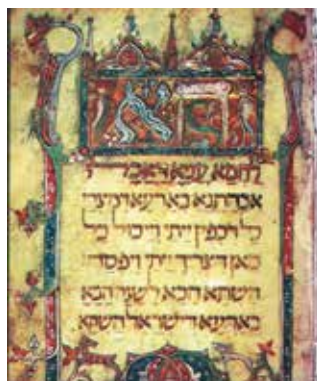 לחמא עניא
אבהתנא בארעא דמצרי
כל דכפין ייתי וייכול כל
מאן דצריך ייתי ויפסח
השתא הכא לשנה הבא
בארעא דישראל השתא